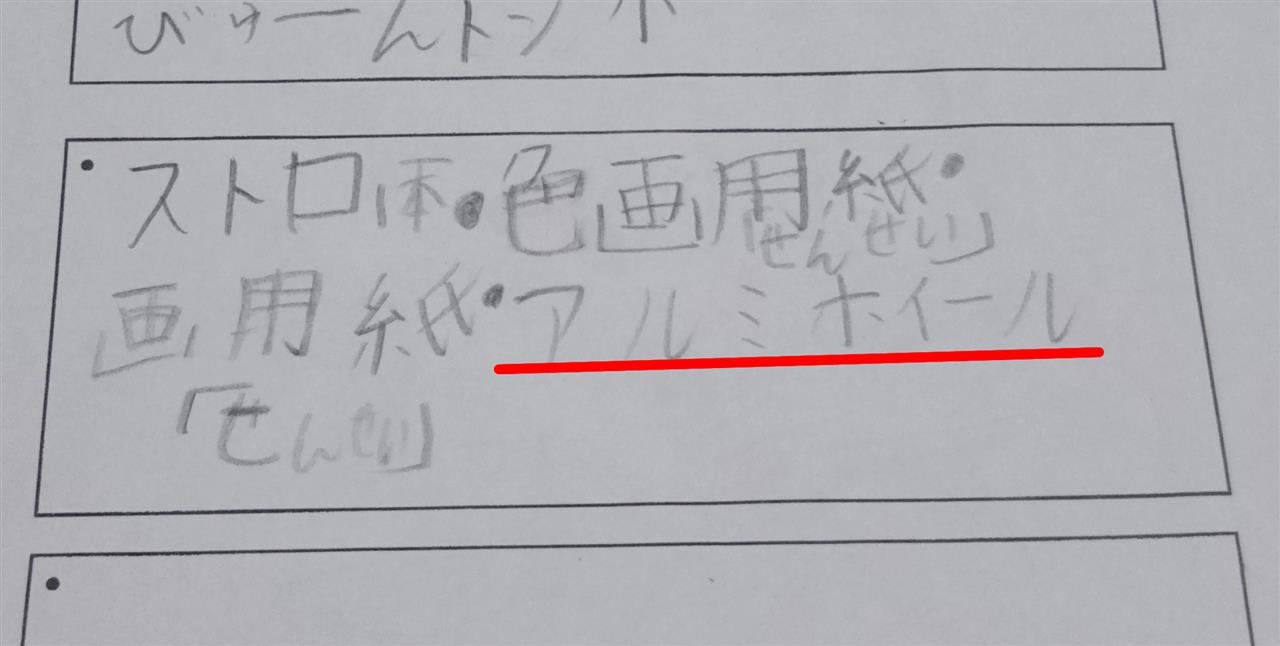 びゅーんトン
・ストロ体・色画用紙・
「せんせい」
画用紙・アルミホイール
「せんせい」
・